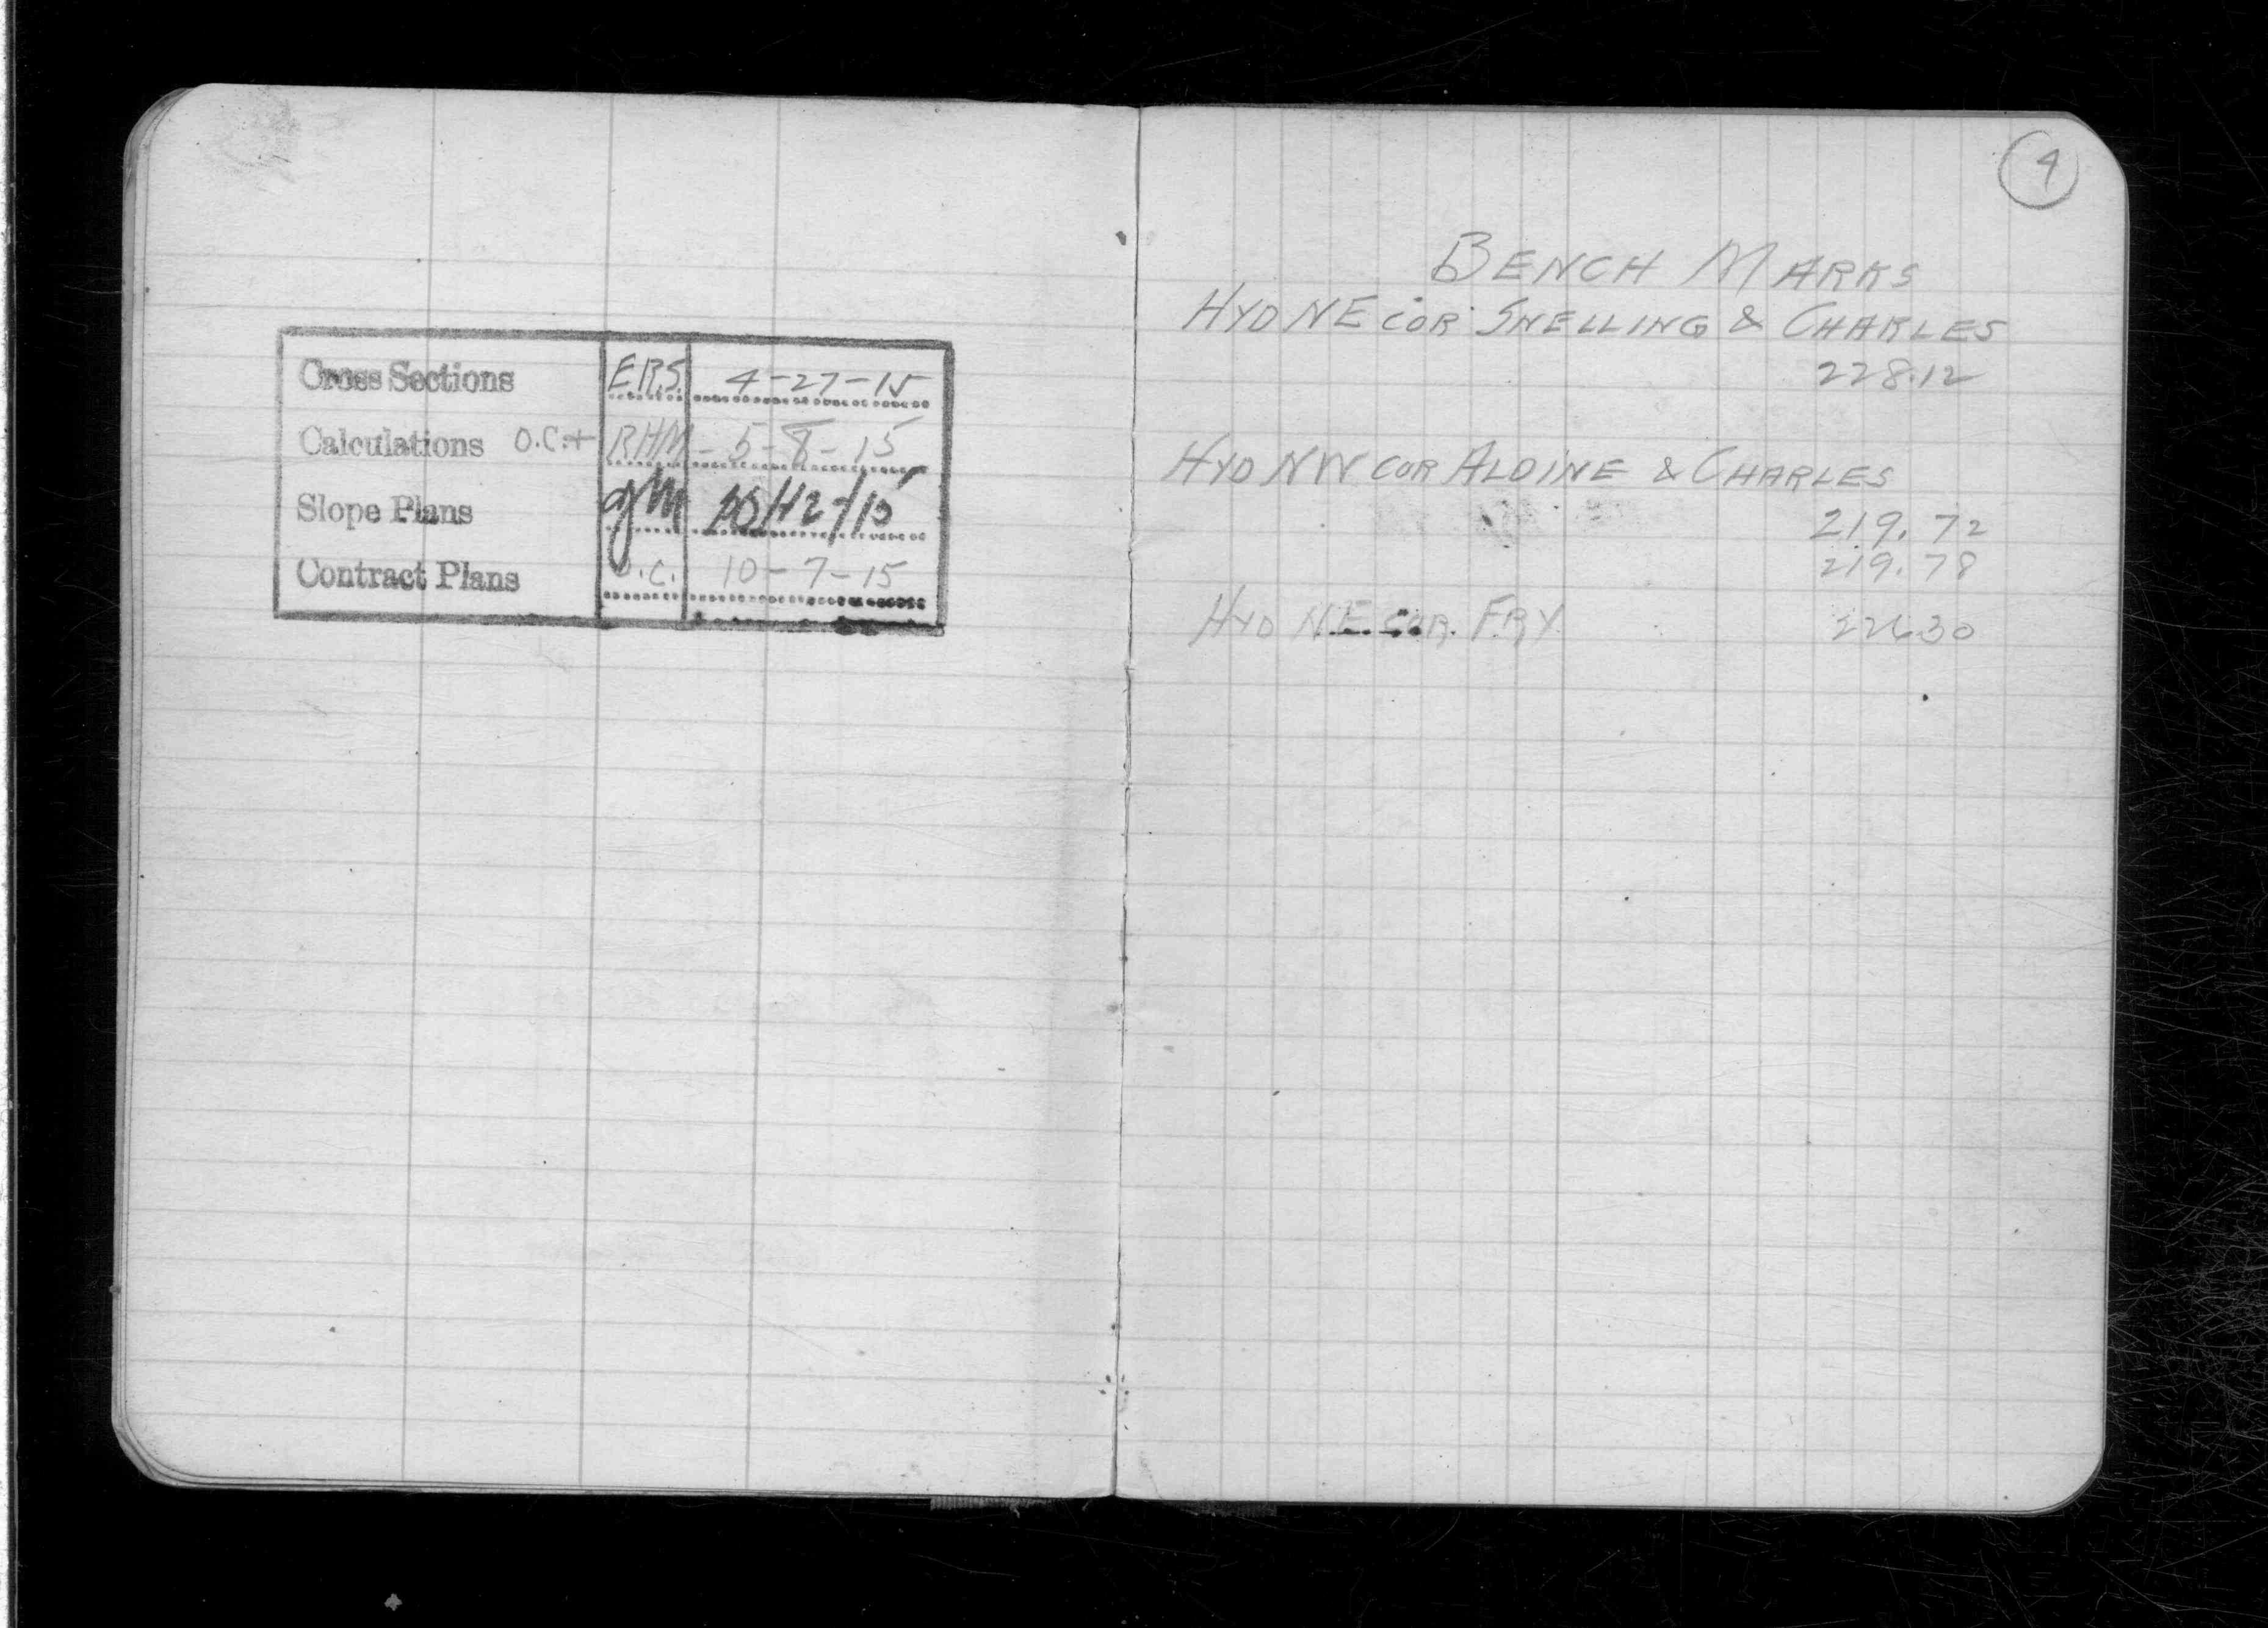 Cross Sections E.R.S. 4-27-15
Calculations O.C.+ RHM - 5-8-15
Slope Plans
Contract Plans O.C. 10-7-15
4
BENCH MARKS
HYD NE COR SNELLING & CHARLES
228.12
HYD NW COR ALDINE & CHARLES
219.72
219.78
HYD N.E. COR. FRY